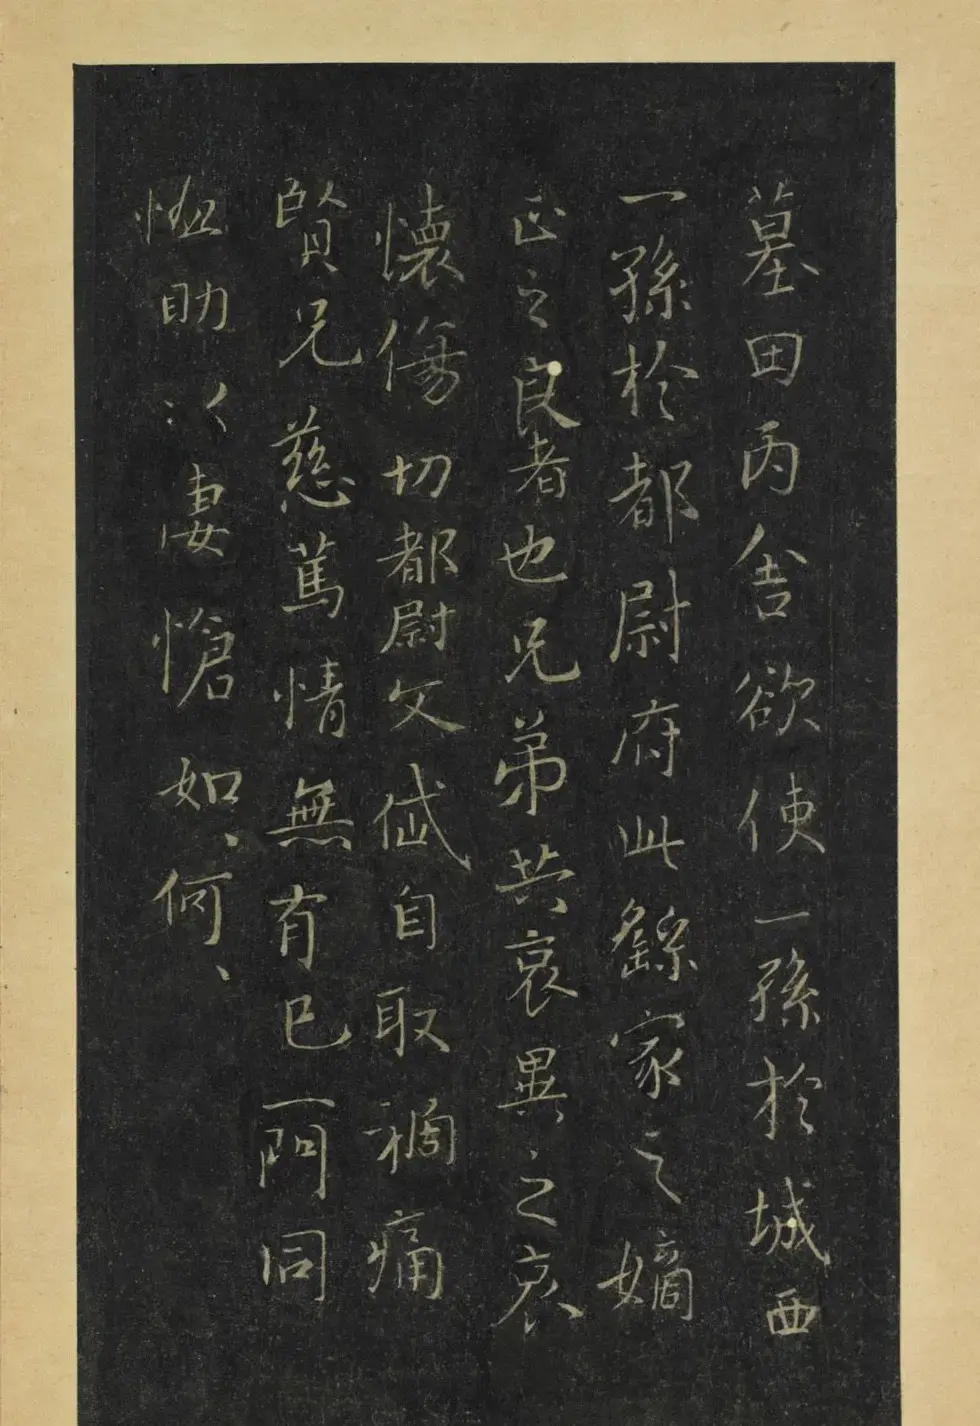 墓田丙舍欲使一孫於城西
一孫於都尉府此繇家之嫡
正之良者也兄弟共哀異之哀
懷傷切都尉文岱自取禍痛
賢兄慈篤情無有已一門同
恤助以凄愴如、何、